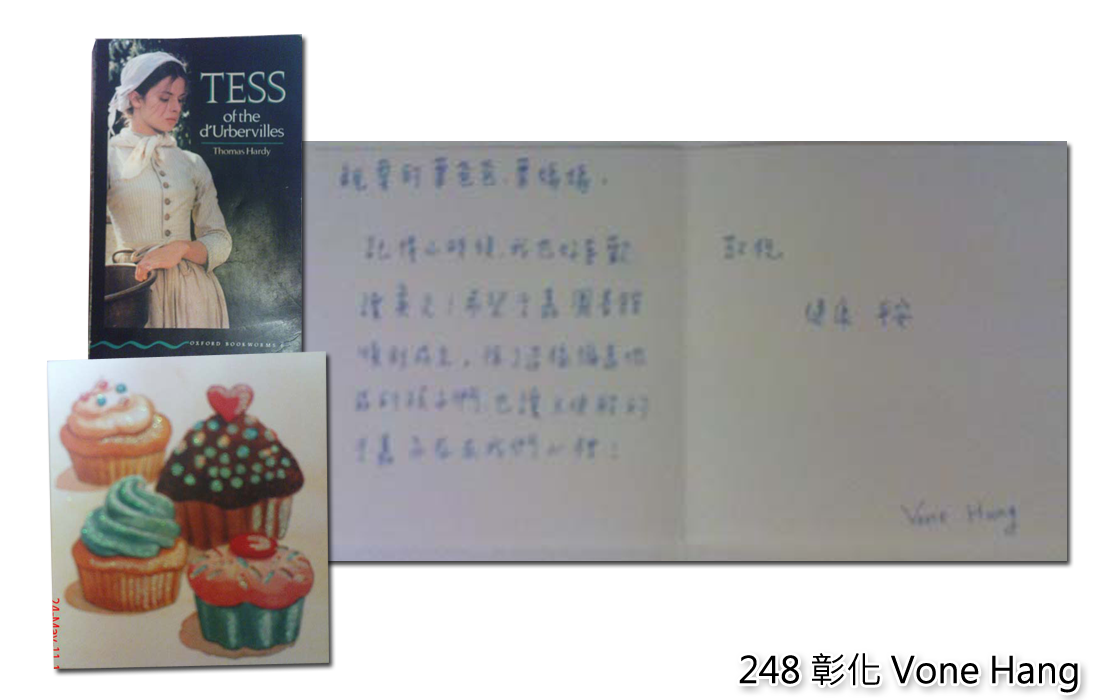 TESS
of the
d'Urbervilles
Thomas Hardy
OXFORD BOOKWORMS
親愛的葉爸爸、葉媽媽,
記得小時候,我也好喜歡
讀英文!希望于嘉圖書館
順利成立,除了造福偏遠地
區的孩子們,也讓天使般的
于嘉永存在我們心裡!
敬祝
健康 平安
Vone Hang
24-May-11
248 彰化 Vone Hang